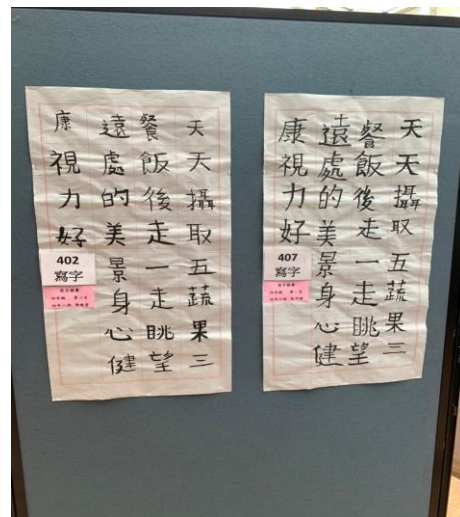 天天攝取五蔬果三
餐飯後走一走眺望
遠處的美景身心健
康視力好
407
寫字
天天攝取五蔬果三
餐飯後走一走眺望
遠處的美景身心健
康視力好
402
寫字